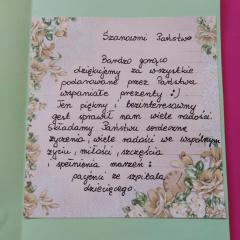 Szanowni Państwo
Bardzo gorąco
dziękujemy za wszystkie
podarowane przez Państwa
wspaniałe prezenty :)
Ten piękny i bezinteresowny
gest sprawił nam wiele radości.
Składamy Państwu serdeczne
życzenia, wiele radości we wspólnym
życiu, miłości, szczęścia
i spełnienia marzeń:
pacjenci ze szpitala
dziecięcego.